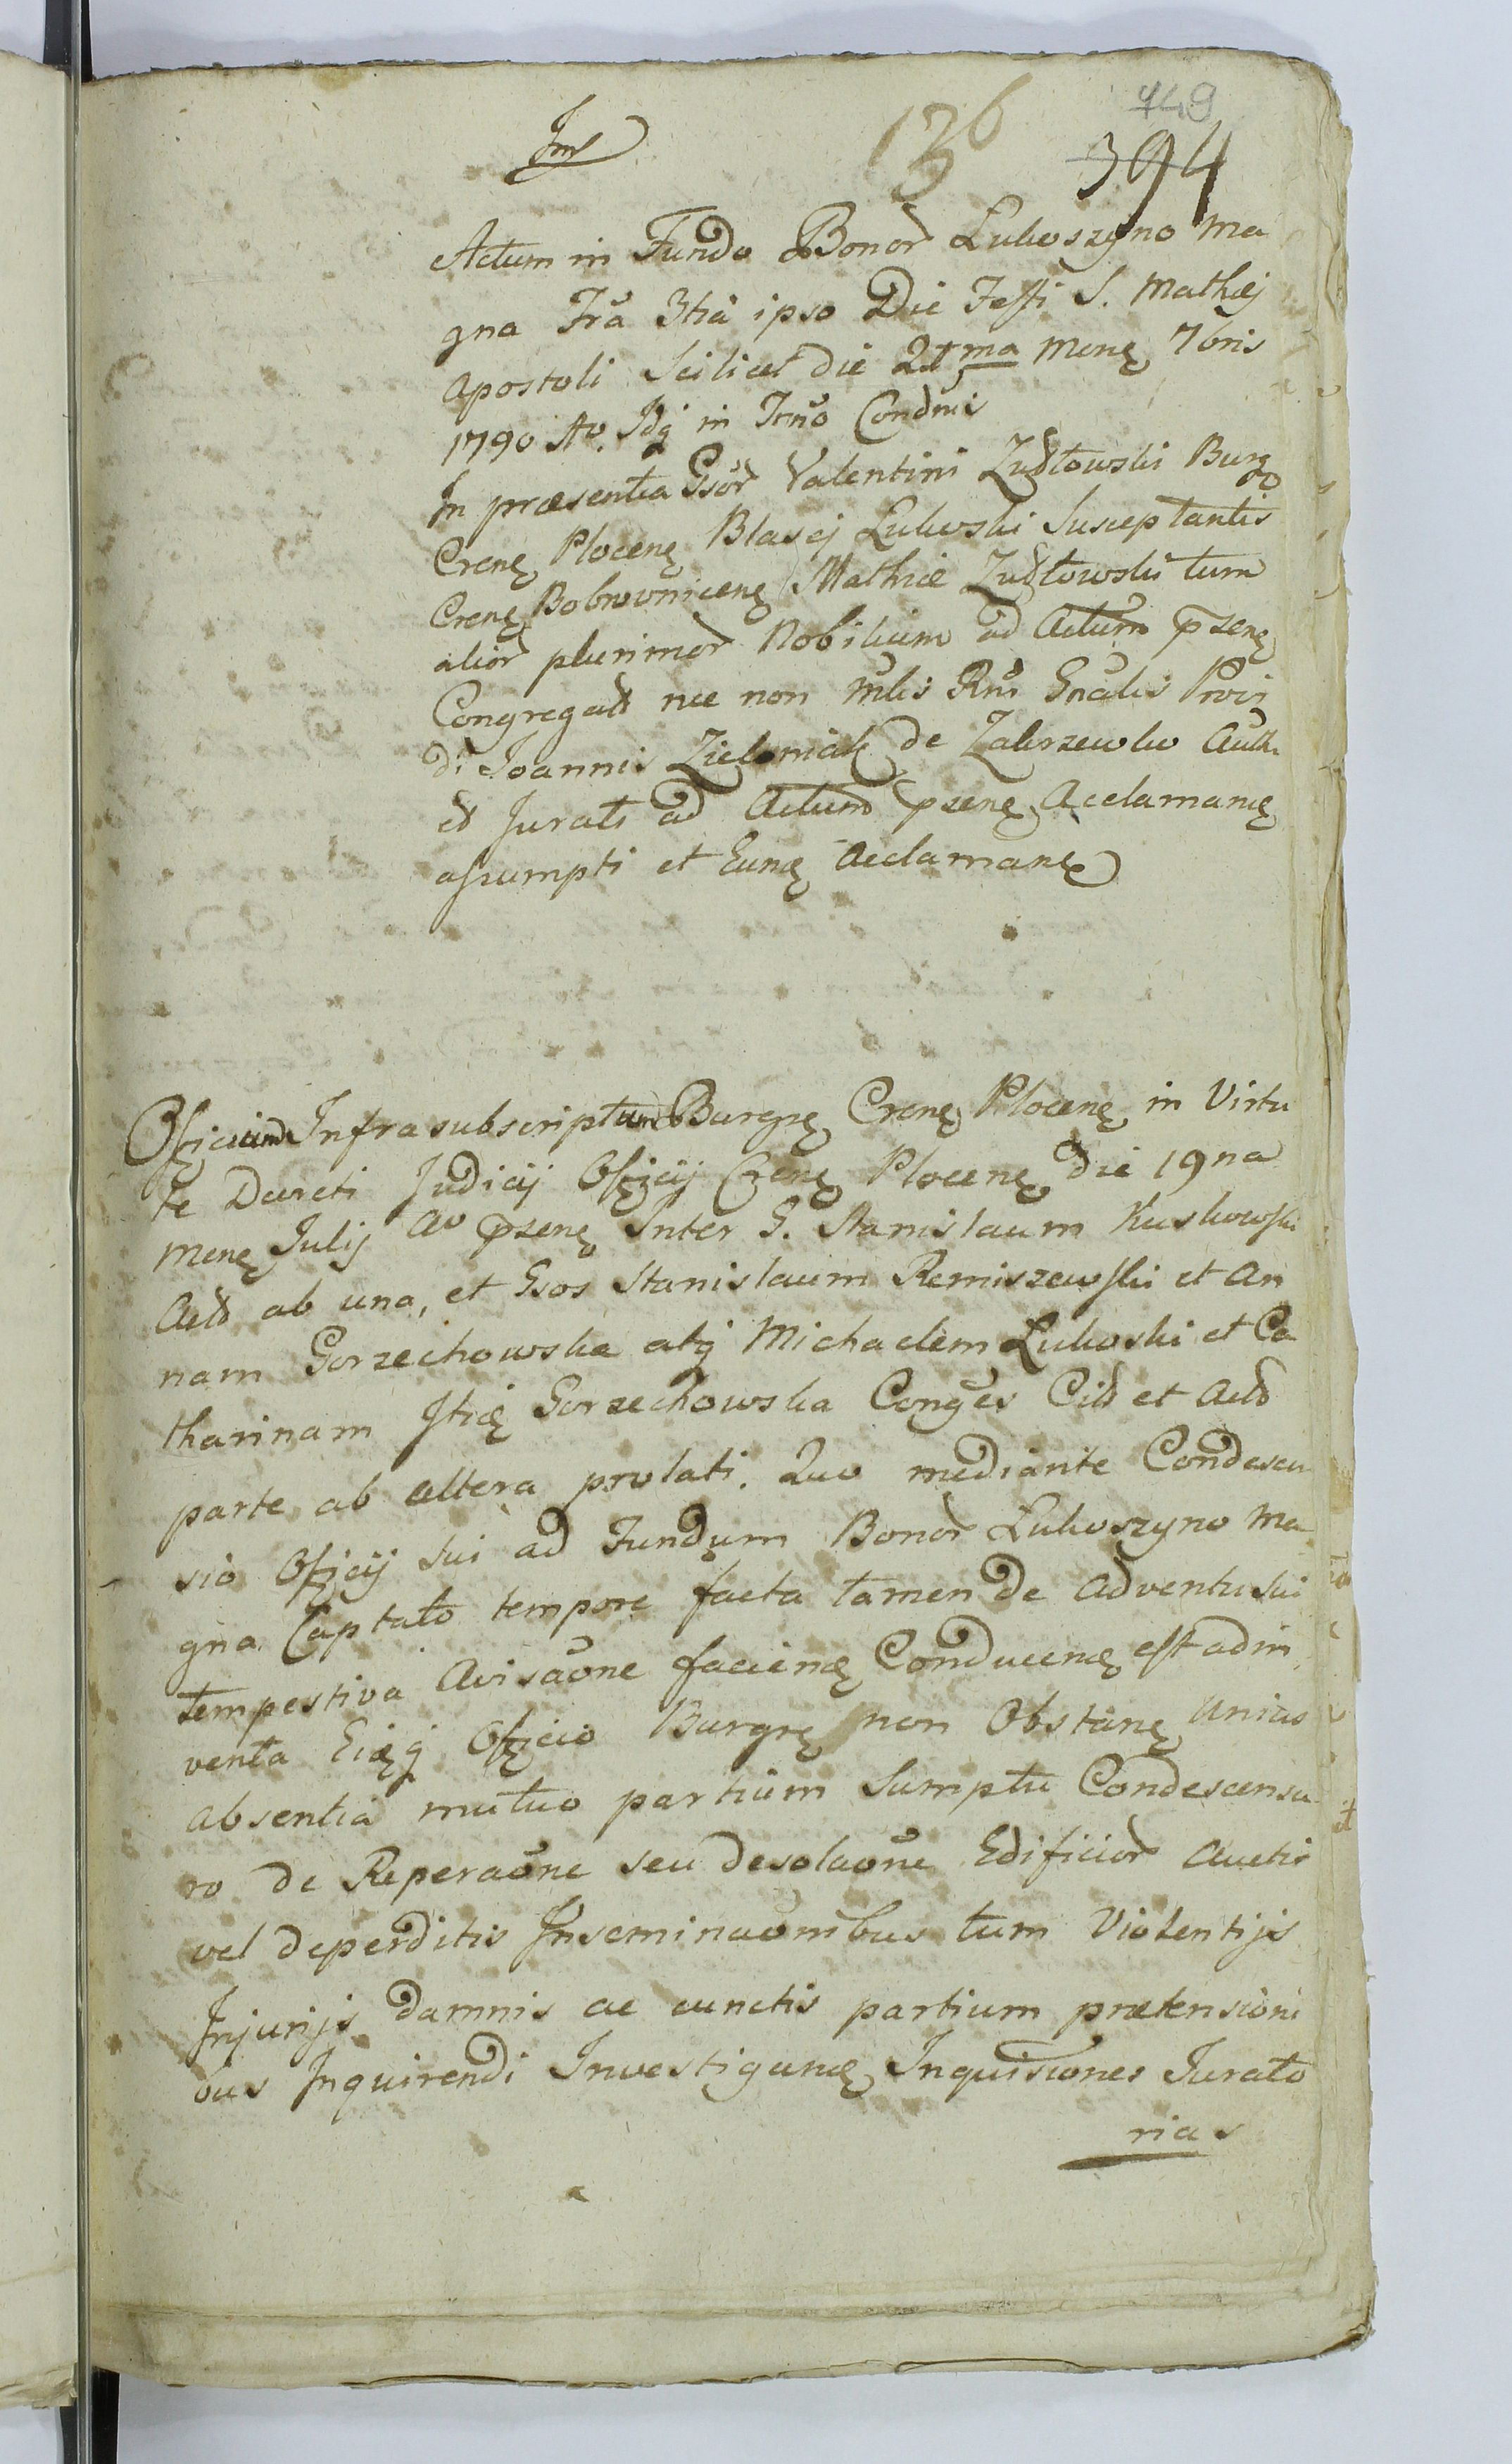 749
136
394
Actum in Fundo Bonor Lukoszyno Ma
gna Fra 3tia ipso Die Festi S. Mathęj
Apostoli Scilicet die 21ma Menę 7bris
1790 Ao. Idq in Trno Condnis
In præsentia Gsor Valentini Zudłowski Burg
Crenę Plocenę Blasej Lukoski Susceptantis
Crenę Bobrovnicenę Mathiæ Zudłowski tum
alior plurimor Nobilium ad Actum pzenę
Congregat nec non mlis Rni Gnalis Provi
di Joannis Zieloniak de Zakrzewko Auth
et Jurati ad Actum pzenę Acclamanę
assumpti et Eunę Acclamanę
Officium Infrasubscriptum Burgrę Crenę Plocenę in Virtu
te Decreti Judicij Officij Crenę Plocenę die 19na
Menę Julij Ao pzenę Inter G. Stanislaum Kuskowski
Actd ab una, et Gsos Stanislaum Remiszewski et An
nam Gorzechowska atq Michaelem Lukoski et Ca
tharinam Itię Gorzechowska Conges Citt et Actd
parte ab altera prolati. Quo mediante Condescen
sio Officij sui ad Fundum Bonor Lukoszyno Ma
gna Captato tempore facta tamen de adventu sui
tempestiva Avisaone facienę Conducenę est adin
venta Eięq Officio Burgrę non Obstanę Unius
absentia mutuo partium Sumptu Condescensu
ro de Reperaone seu desolaone Edificior auctis
vel deperditis Inseminaonibus tum Violentijs
Injurijs damnis ac cunctis partium prætensioni
bus Inquirendi Investiganę Inquisiones Jurato
rias